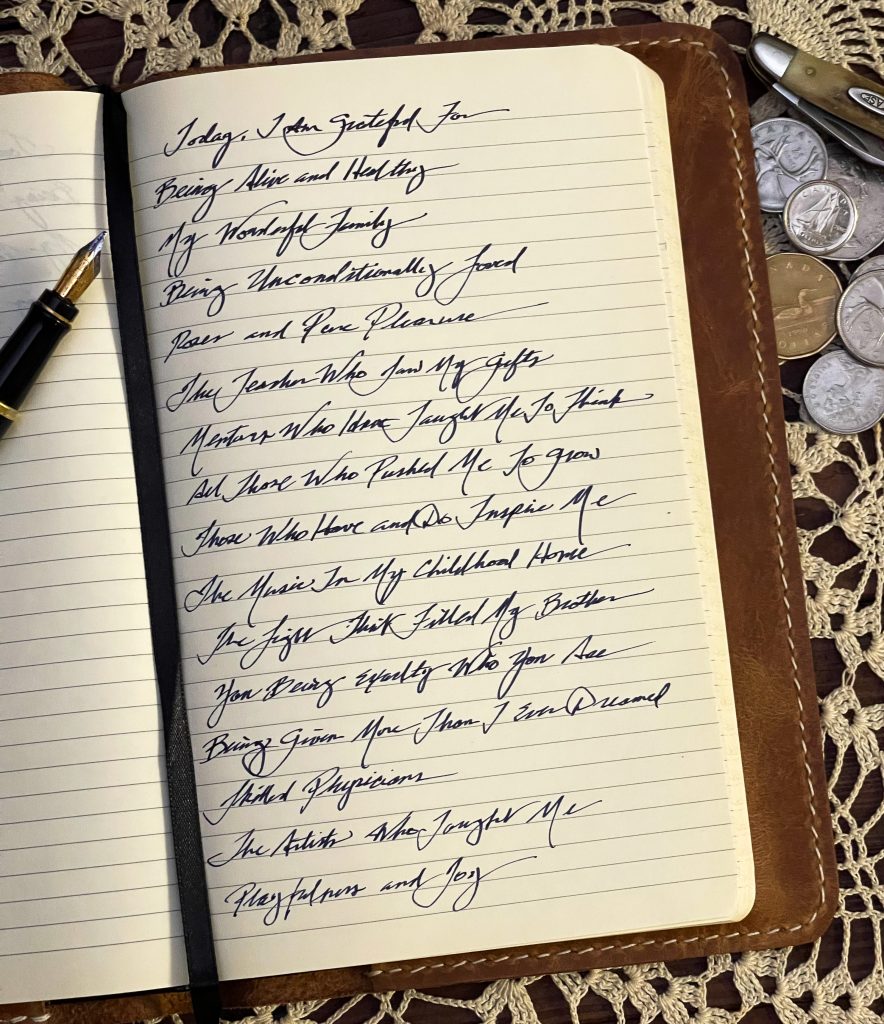 Today, I Am Grateful For
Being Alive and Healthy
My Wonderful Family
Being Unconditionally Loved
Roses and Pure Pleasure
The Teacher Who Saw My Gifts
Mentors Who Have Taught Me To Think
All Those Who Pushed Me To Grow
Those Who Have and Do Inspire Me
The Music In My Childhood Home
The Light That Filled My Brother
You Being Exactly Who You Are
Being Given More Than I Ever Dreamed
Skilled Physicians
The Artists Who Taught Me
Playfulness and Joy
CASE
CANADA